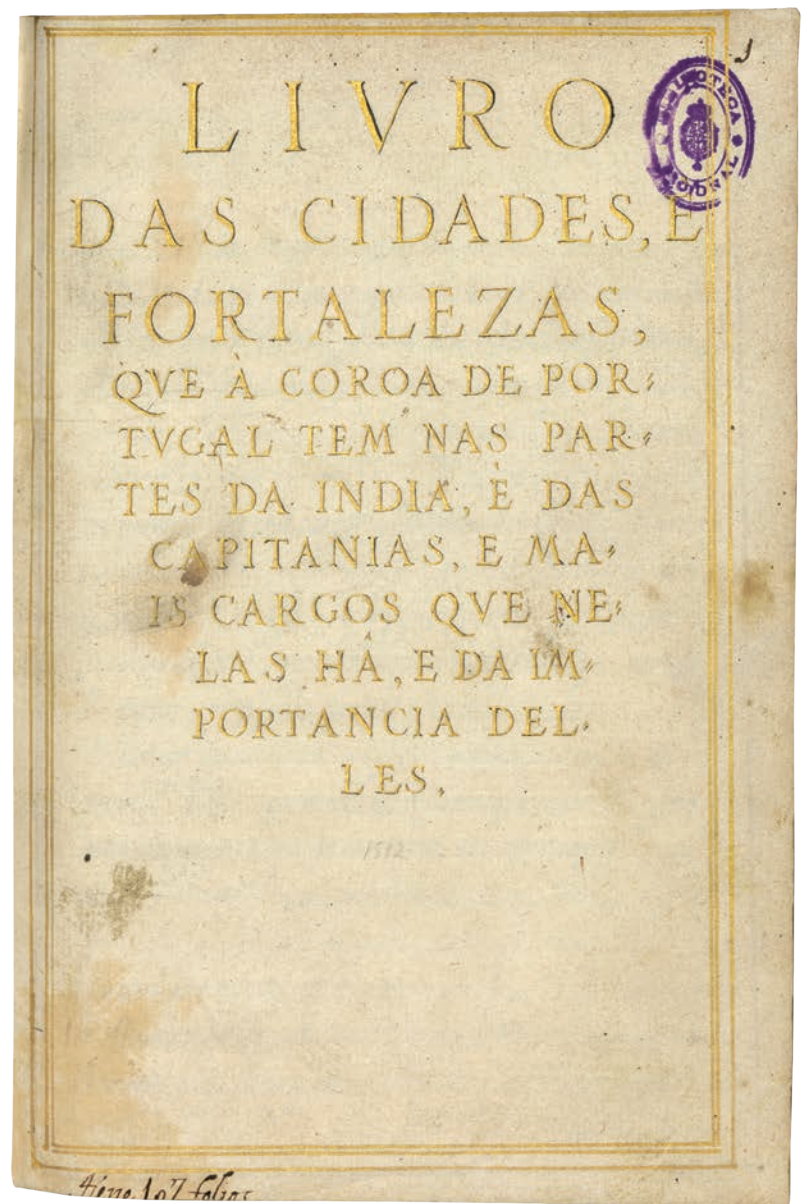 1
BIBLIOTECA
NACIONAL
LIVRO
DAS CIDADES, E
FORTALEZAS,
QVE À COROA DE POR⸗
TVGAL TEM NAS PAR⸗
TES DA INDIA, È DAS
CAPITANIAS, E MA⸗
IS CARGOS QVE NE⸗
LAS HÁ, E DA IM⸗
PORTANCIA DEL⸗
LES,
1512
tiene 107 folios